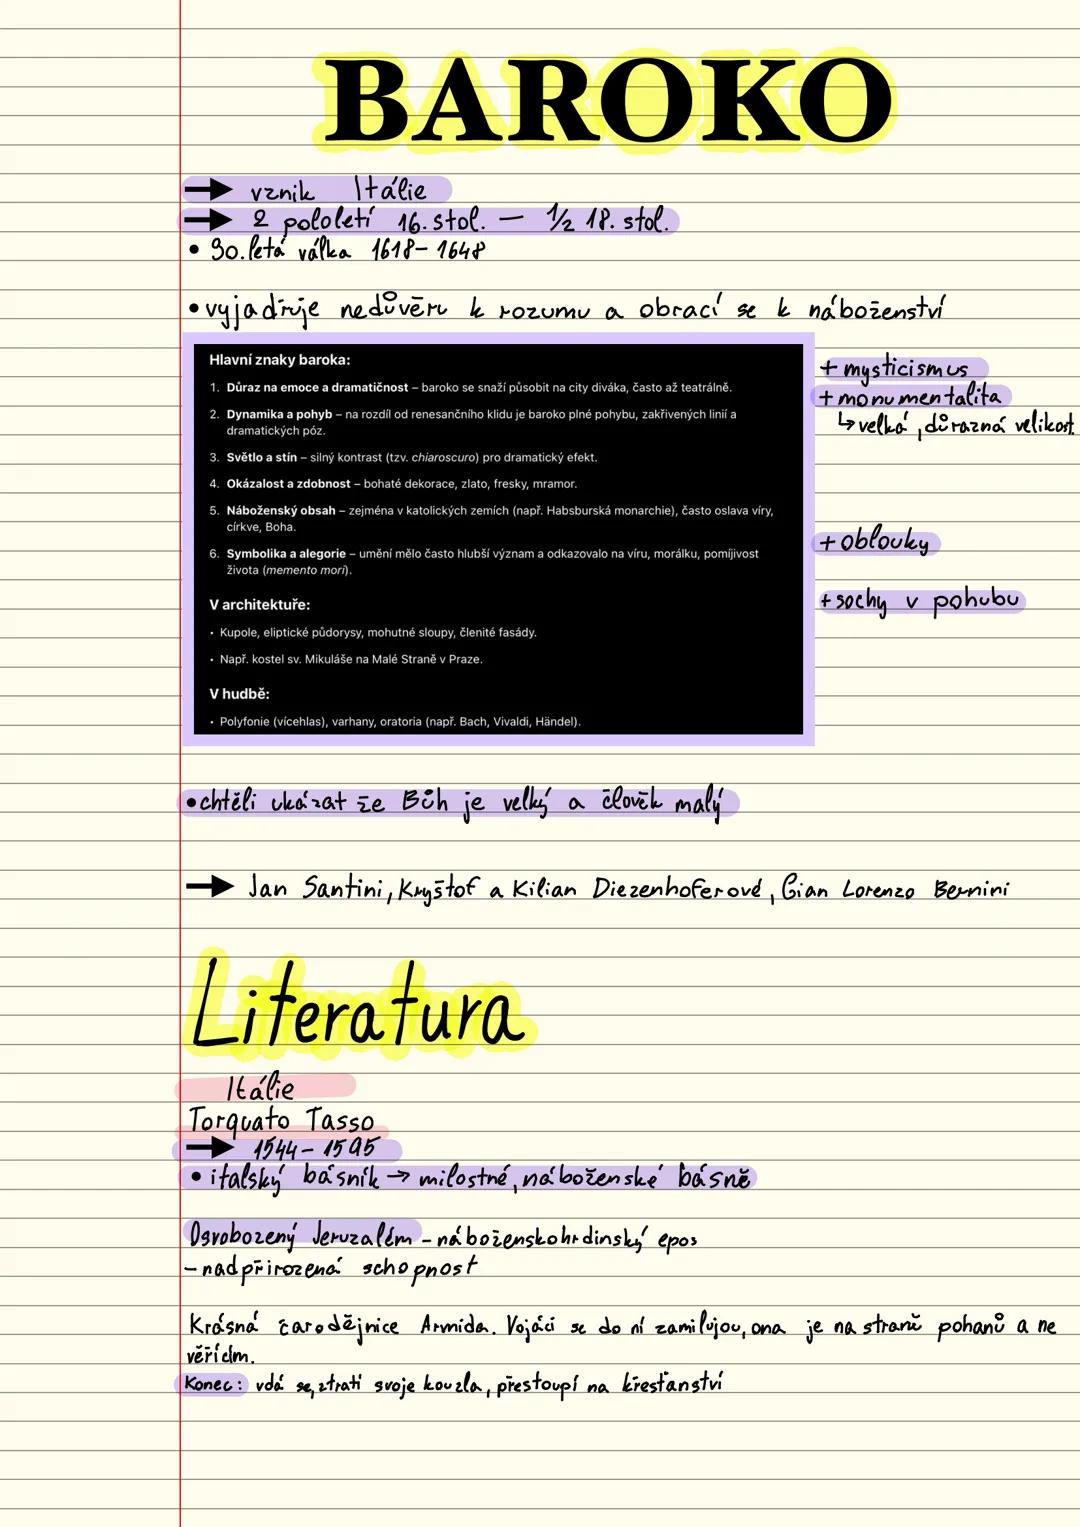 BAROKO
→ vznik Itálie
→ 2 pololetí 16. stol. – 1/2 18. stol.
• 30. letá válka 1618 – 1648
• vyjadřuje nedůvěru k rozumu a obrací se k náboženství
Hlavní znaky baroka:
1. Důraz na emoce a dramatičnost – baroko se snaží působit na city diváka, často až teatrálně.
2. Dynamika a pohyb – na rozdíl od renesančního klidu je baroko plné pohybu, zakřivených linií a
dramatických póz.
3. Světlo a stín – silný kontrast (tzv. chiaroscuro) pro dramatický efekt.
4. Okázalost a zdobnost – bohaté dekorace, zlato, fresky, mramor.
5. Náboženský obsah – zejména v katolických zemích (např. Habsburská monarchie), často oslava víry,
církve, Boha.
6. Symbolika a alegorie – umění mělo často hlubší význam a odkazovalo na víru, morálku, pomíjivost
života (memento mori).
V architektuře:
• Kupole, eliptické půdorysy, mohutné sloupy, členité fasády.
• Např. kostel sv. Mikuláše na Malé Straně v Praze.
V hudbě:
• Polyfonie (vícehlas), varhany, oratoria (např. Bach, Vivaldi, Händel).
+ mysticismus
+ monumentalita
↳ velká, důrazná velikost
+ oblouky
+ sochy v pohubu
• chtěli ukázat že Bůh je velký a člověk malý
→ Jan Santini, Kryštof a Kilian Diezenhoferové, Gian Lorenzo Bernini
Literatura
Itálie
Torquato Tasso
→ 1544 – 1595
• italský básník → milostné, náboženské básně
Osvobozený Jeruzalém – náboženskohrdinský epos
– nadpřirozená schopnost
Krásná čarodějnice Armida. Vojáci se do ní zamilujou, ona je na straně pohanů a ne
věřícím.
Konec: vdá se, ztratí svoje kouzla, přestoupí na křesťanství